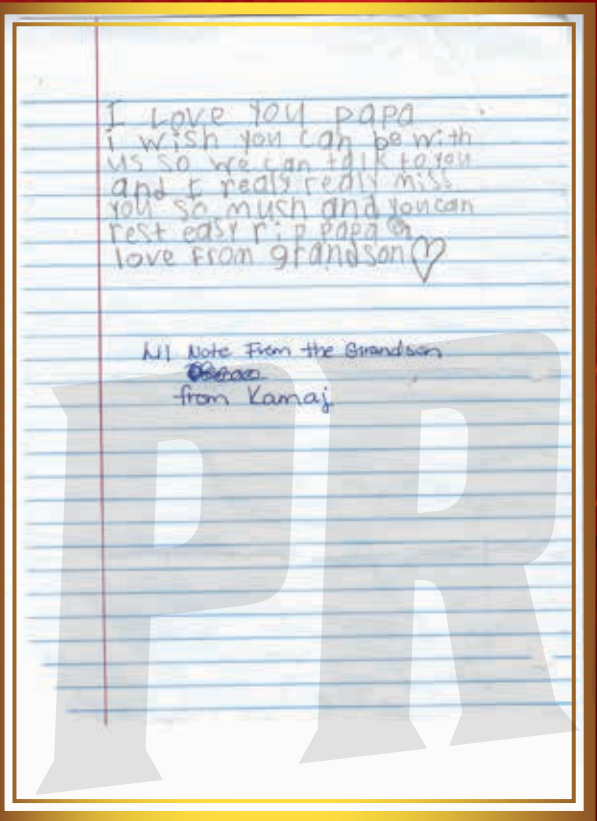 I Love You papa
i wish you can be with
us so we can talk to you
and I realy realy miss
you so much and you can
rest easy rip papa
love From grandson
Lil Note From the Grandson
from Kamaj
PR